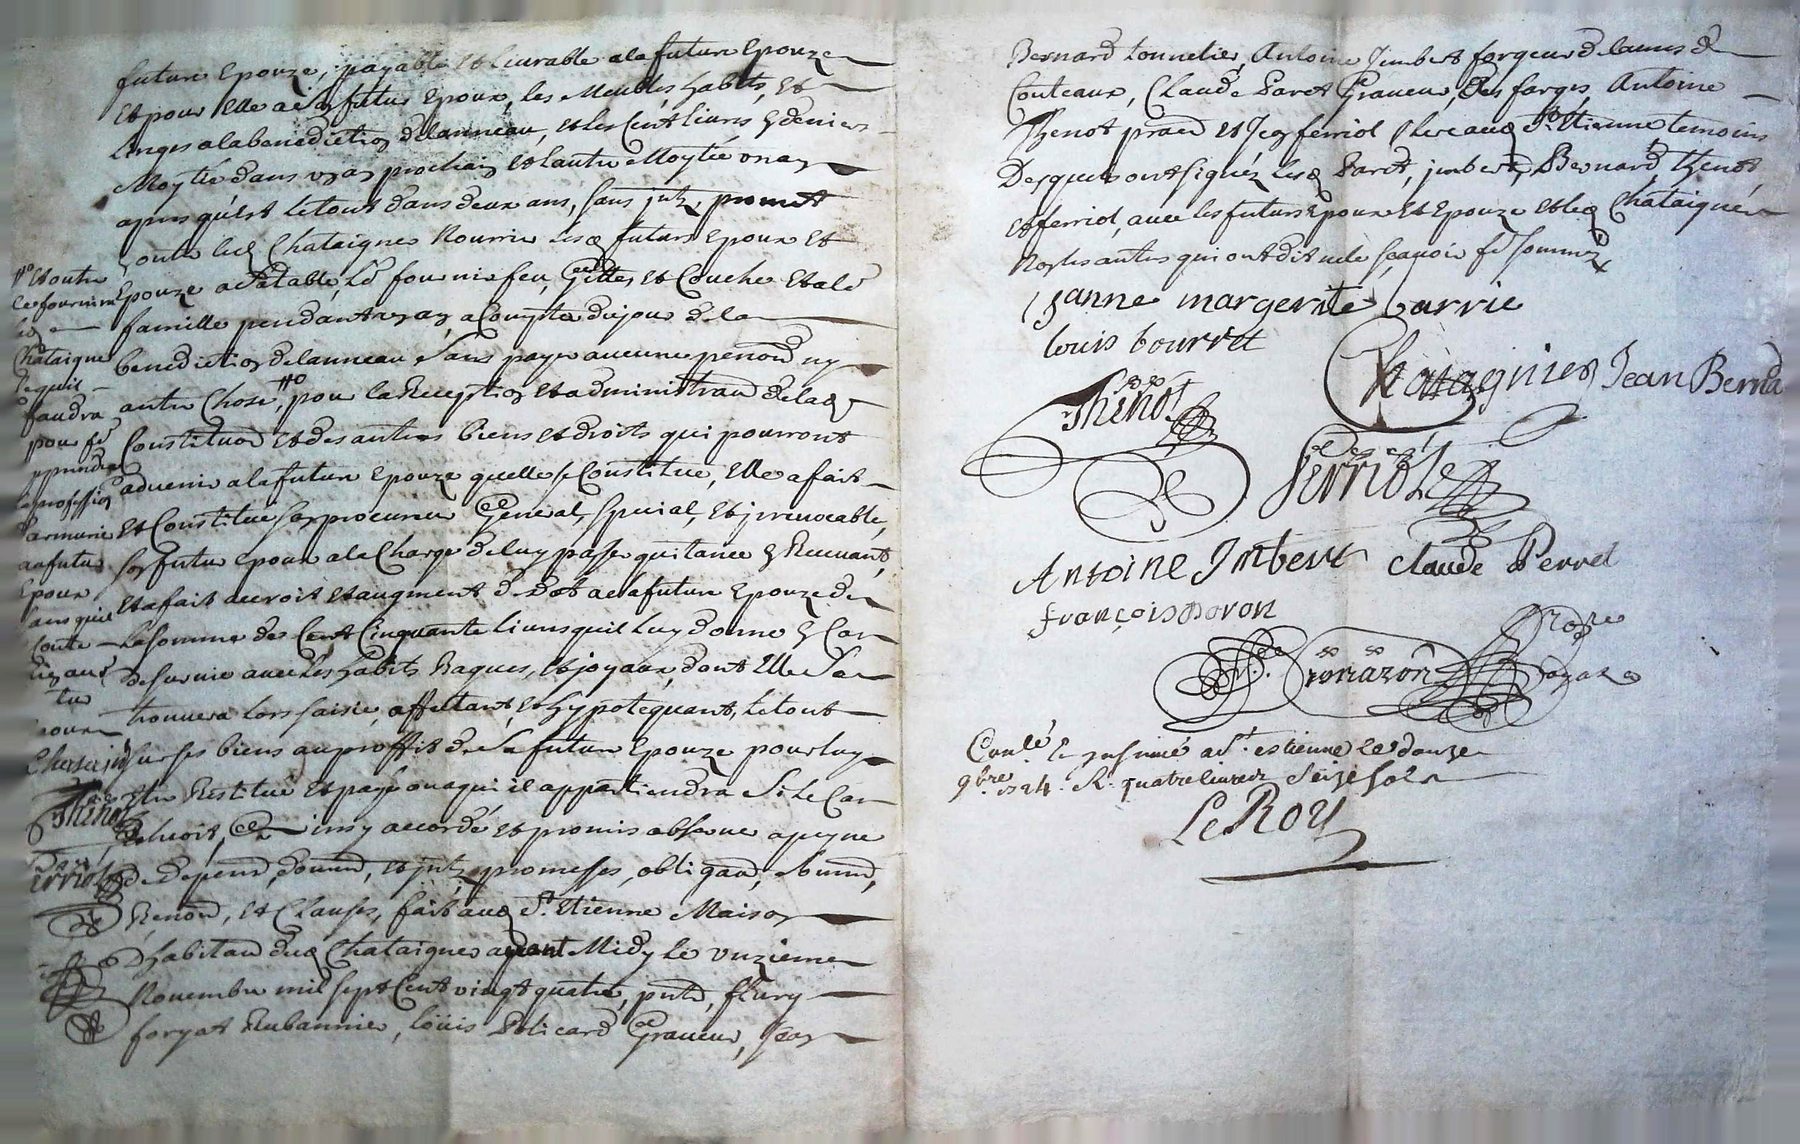 future Epouze, payable et livrable a la future Epouze
Et pour Elle a son futur Epoux, les Meubles, habits, Et
Linges a la benediction de lanneau, et les Cent livres En deniers
Moytié dans un an prochain et lautre Moytié un an
apres qu'est le tout dans deux ans, sans jnts, promet
outre led Chataigner Nourrir lesd futurs Epoux Et
Epouze a sa table, Le fournir feu, Gittes, et Couche Et alé
famille pendant un an, a Compter du jour de la
benediction de lanneau Sans payer aucune penon ny
autre Chose, #o pour la Reception et administraon delad
Constituon et des autres biens et droits qui pourront
advenir a la future Epouze quelle se Constitue, Elle a fait
Et Constitué son procureur General, special, et jrrevocable,
son futur Epoux a la Charge de luy passer quitance En Recevant,
et a fait accroit et augment de Dot a la future Epouze de
la somme de Cent Cinquante livres quil luy donne En Cas
de survie avec les habits Bagues, et joyaux, dont Elle Se
trouvera lors saisie, affettant, et hypotequant, le tout
sur ses biens au proffit de Sa future Epouze pour luy
estre Restitué et payé ou a qui il appartiendra Si le Cas
Echoit, Et ainsy accordé et promis observer a peyne
de Depend, domd, et jnts, promesses, obligaon, soumd,
Renond, et Clauses, fait aud St. Etienne Maison
Dhabitaon dud Chataigner avant Midy le vnzieme
Novembre mil sept Cent vingt quatre, pnts, fleury
foryat Rubannier, loüis Policard Graveur, Jean
#o Et outre
le fournira
led
Chataigner
ce quil
faudra
pour fe
apprendre
la profession
darmurier
au futur
Epoux
sans quil
Coute
Thenot
ferriol
Bernard tonnelier, Antoine Jmbert forgeur de lames de
Couteaux, Claude Paret Graveur, Des farges, Antoine
Thenot praen et Jean ferriol Clerc aud St Etienne temoins
Desquels ont signéz lesd Paret, jmbert, Bernard, thenot,
et ferriol, avec les futurs Epoux Et Epouze et led Chataigner
Non les autres qui ont dit ne le sçavoir fe sommez
janne margerite barrie
louis bourret
Chataignier Jean Bernar
Thenot
ferriol
Antoine Jmbert claude Perret
françois Doron
Cromazon
Conlé. & jnsinué a St. estienne le douze
9bre. 1724. R. quatre livres Seize sols
LeRoy